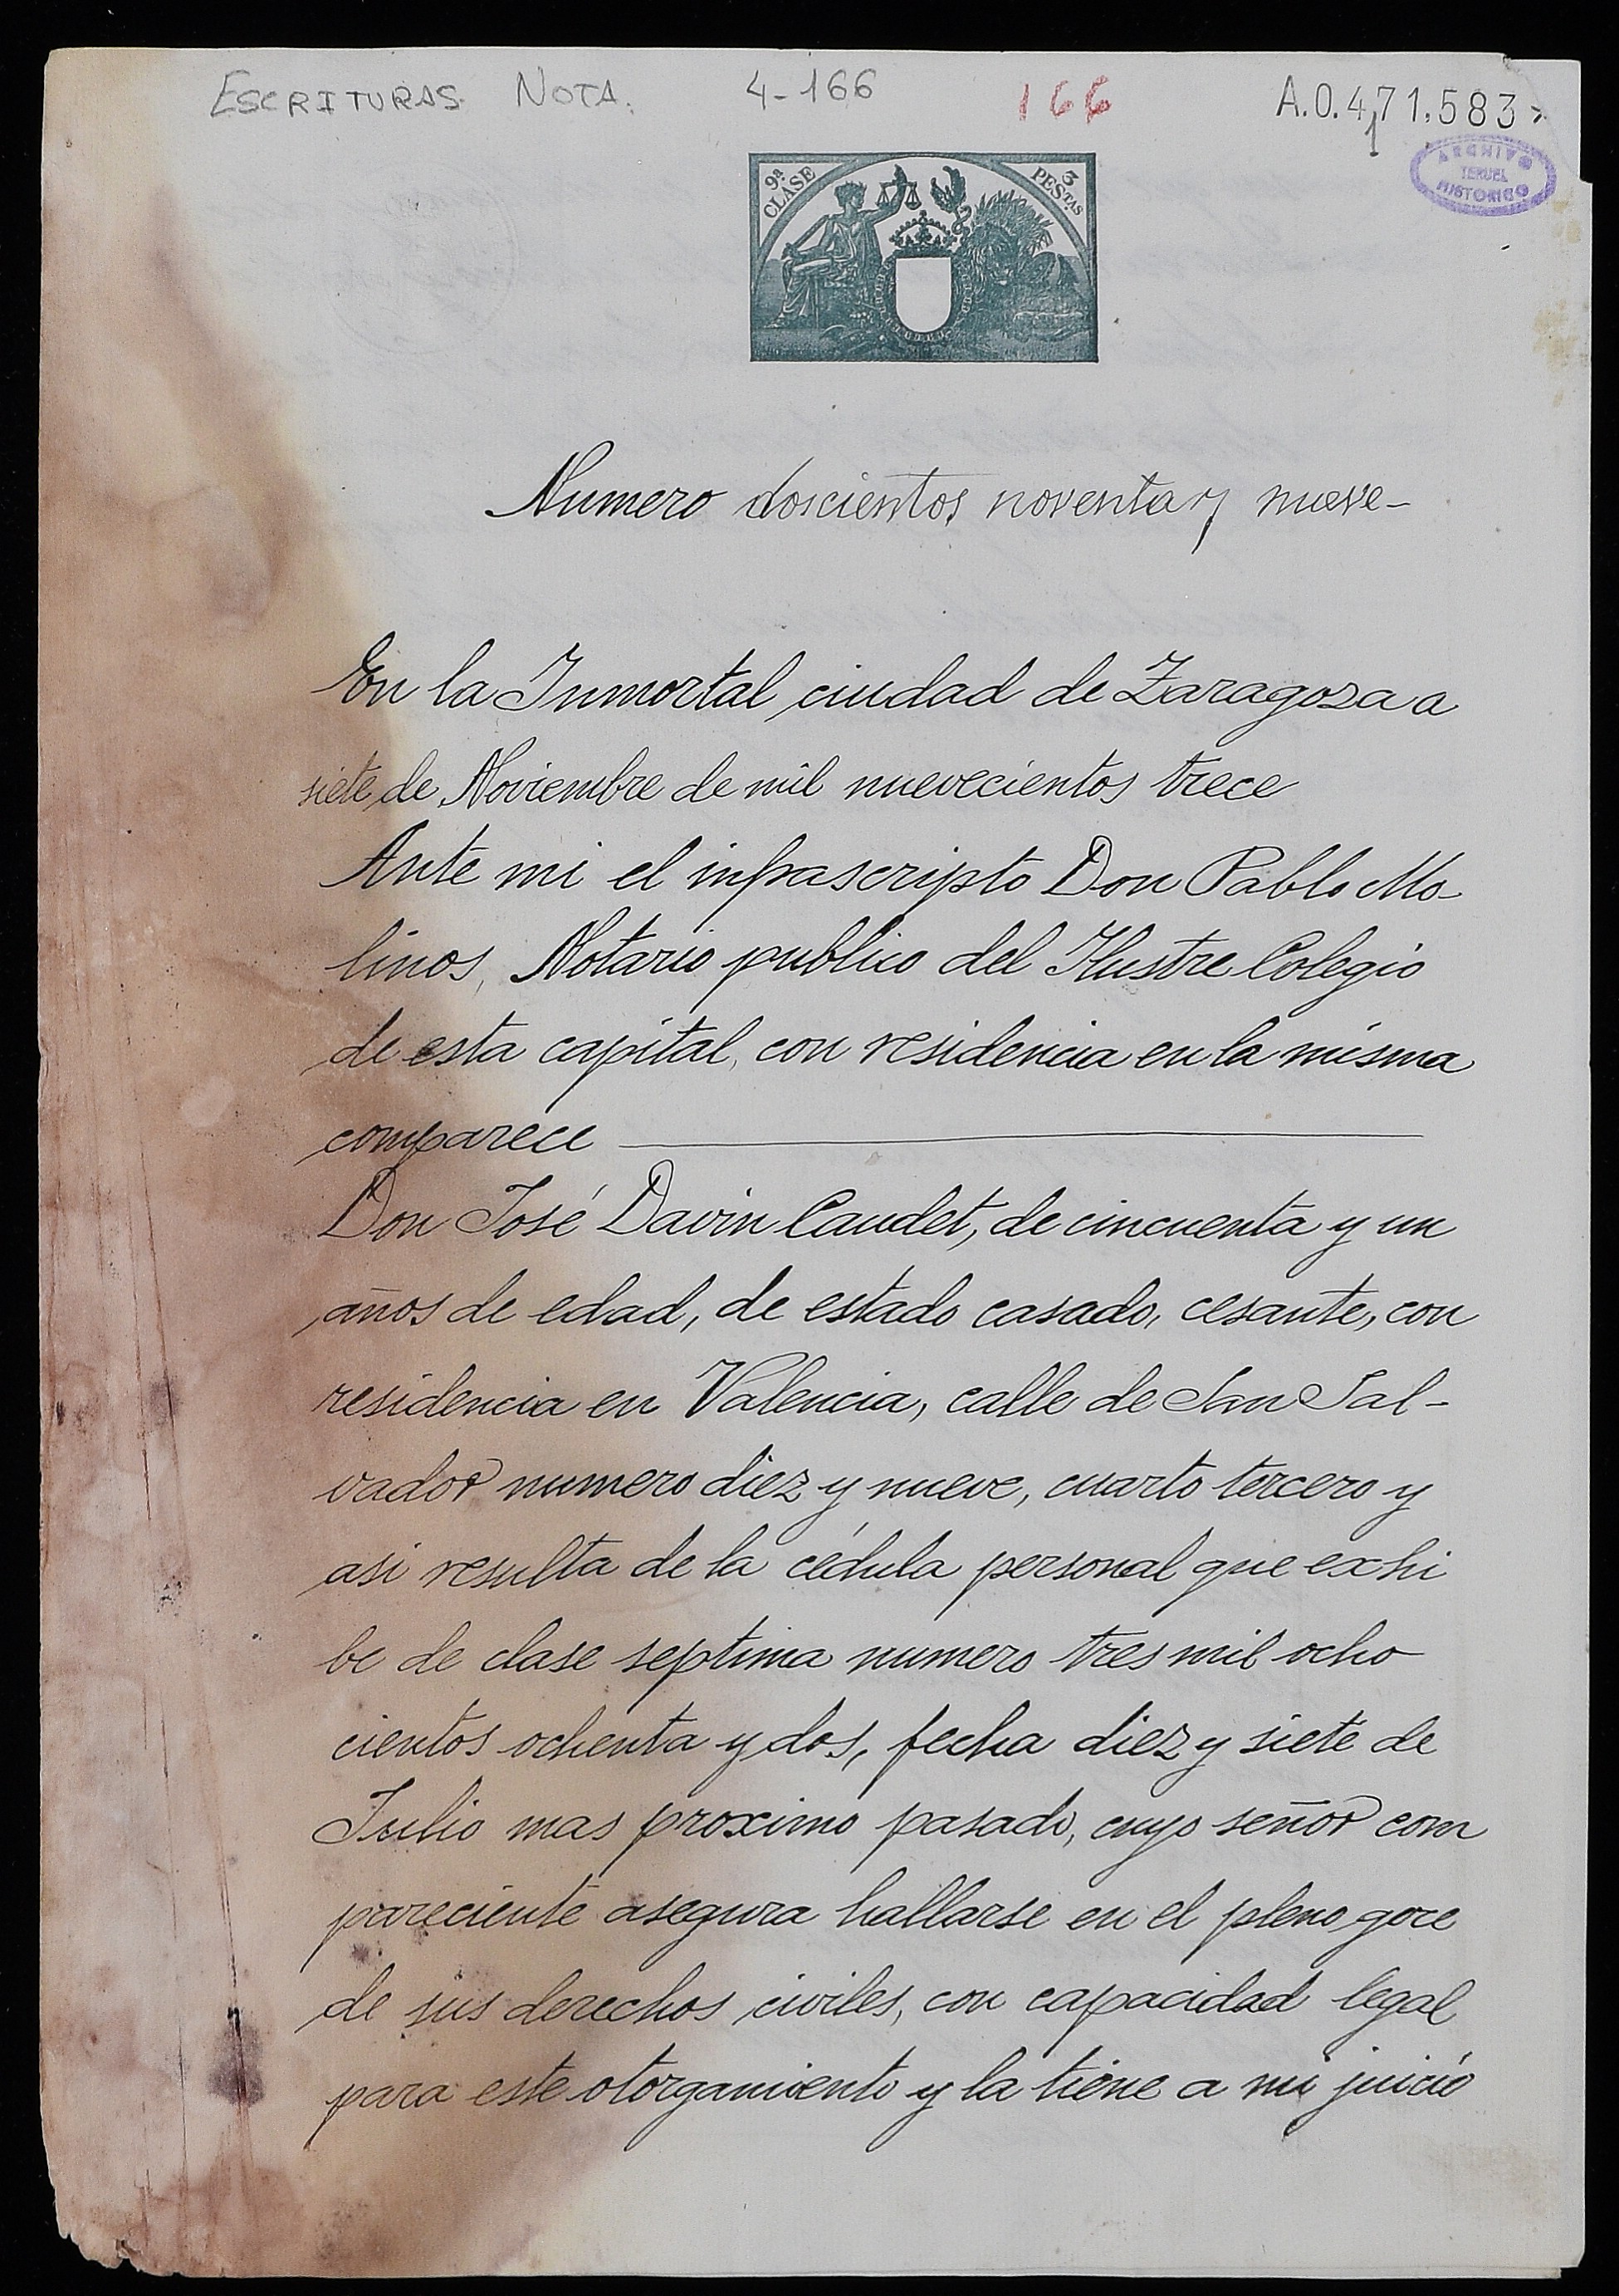 ESCRITURAS NOTA. 4-166 166 A.0.471.583
ARCHIVO
TERUEL
HISTORICO
9ª CLASE 3 PESTAS
Numero doscientos noventa y nueve-
En la Inmortal ciudad de Zaragoza a
siete de Noviembre de mil nuevecientos trece
Ante mi el infrascripto Don Pablo Mo-
linos, Notario publico del Ilustre Colegio
de esta capital, con residencia en la misma
comparece
Don José Davin Caudet, de cincuenta y un
años de edad, de estado casado, cesante, con
residencia en Valencia, calle de San Sal-
vador numero diez y nueve, cuarto tercero y
asi resulta de la cédula personal que exhi
be de clase septima numero tres mil ocho
cientos ochenta y dos, fecha diez y siete de
Julio mas proximo pasado, cuyo señor com
pareciente asegura hallarse en el pleno goce
de sus derechos civiles, con capacidad legal
para este otorgamiento y la tiene a mi juicio